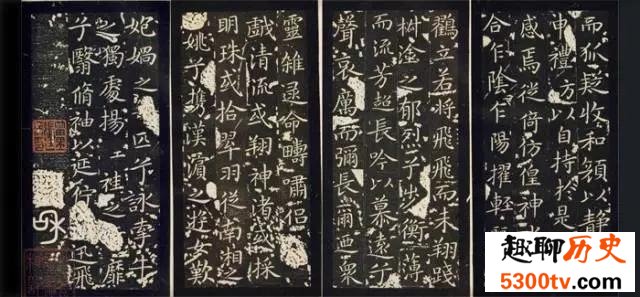 而狐疑收和顔以静
申禮防以自持於是
感焉徙倚彷徨神
合乍陰乍陽擢輕
鶴立若將飛飛而未翔踐
椒塗之郁烈兮步衡薄
而流芳超長吟以慕遠兮
聲哀厲而彌長爾迺衆
靈雜遝命疇嘯侶
戲清流或翔神渚或採
明珠或拾翠羽從南湘之
姚兮携漢濱之遊女歎
妃媧之匹兮詠牽牛
之獨處揚袿之靡
兮翳脩袖以延佇迅飛
趣聊历史
5300tv.com